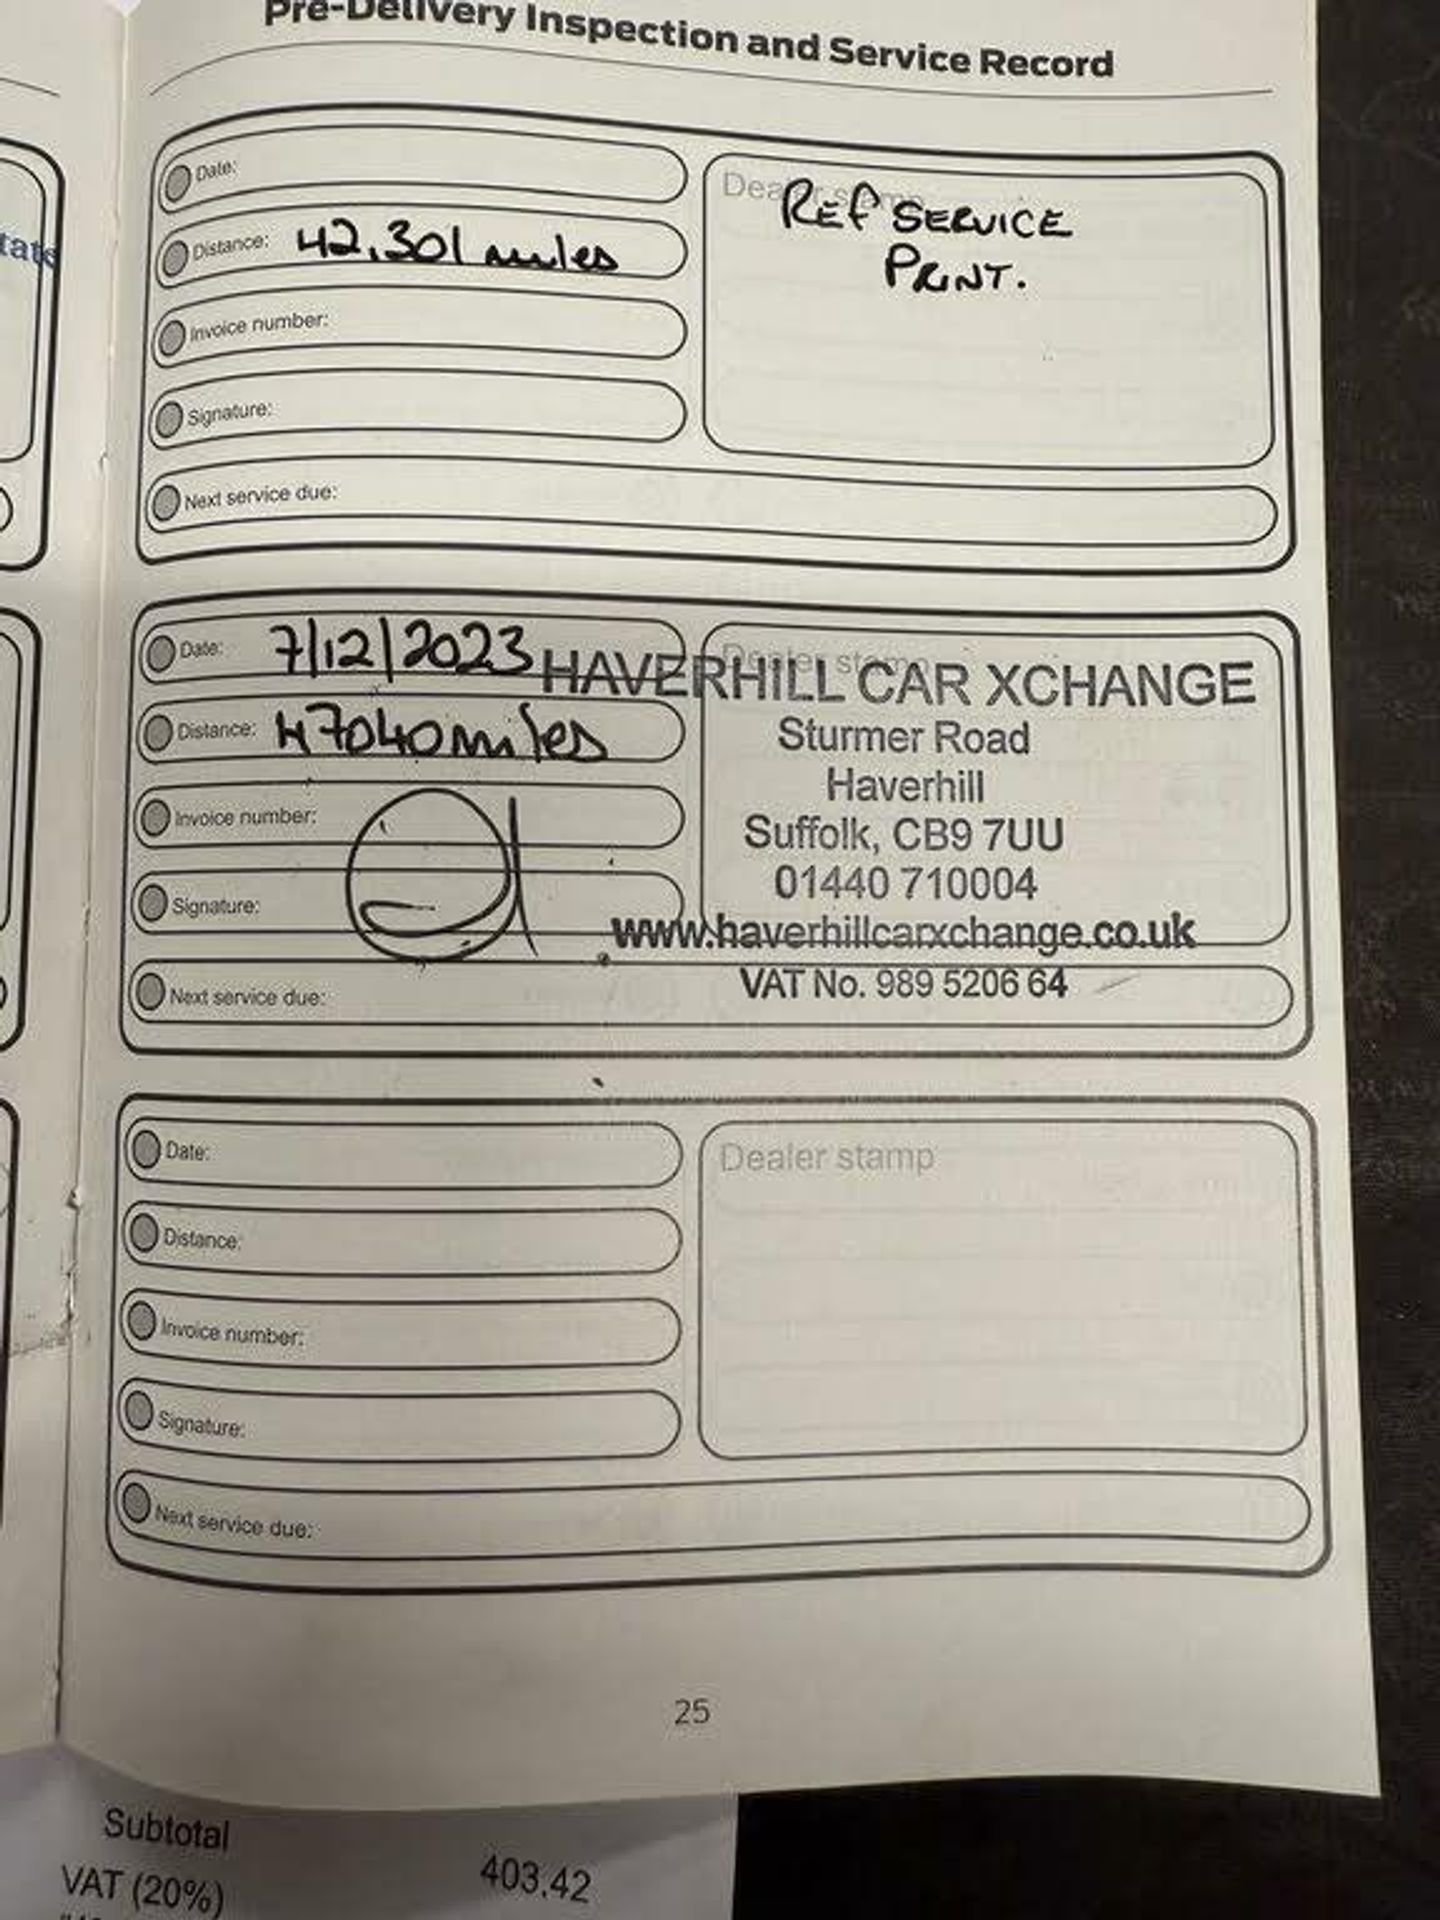 Pre-Delivery Inspection and Service Record
Date:
Distance: 42,301 miles
Invoice number:
Signature:
Next service due:
Dealer stamp
REF SERVICE
PRINT.
Date: 7/12/2023
Distance: 47040 miles
Invoice number:
Signature:
Next service due:
Dealer stamp
HAVERHILL CAR XCHANGE
Sturmer Road
Haverhill
Suffolk, CB9 7UU
01440 710004
www.haverhillcarxchange.co.uk
VAT No. 989 5206 64
Date:
Distance:
Invoice number:
Signature:
Next service due:
Dealer stamp
25
Subtotal
VAT (20%)
403.42